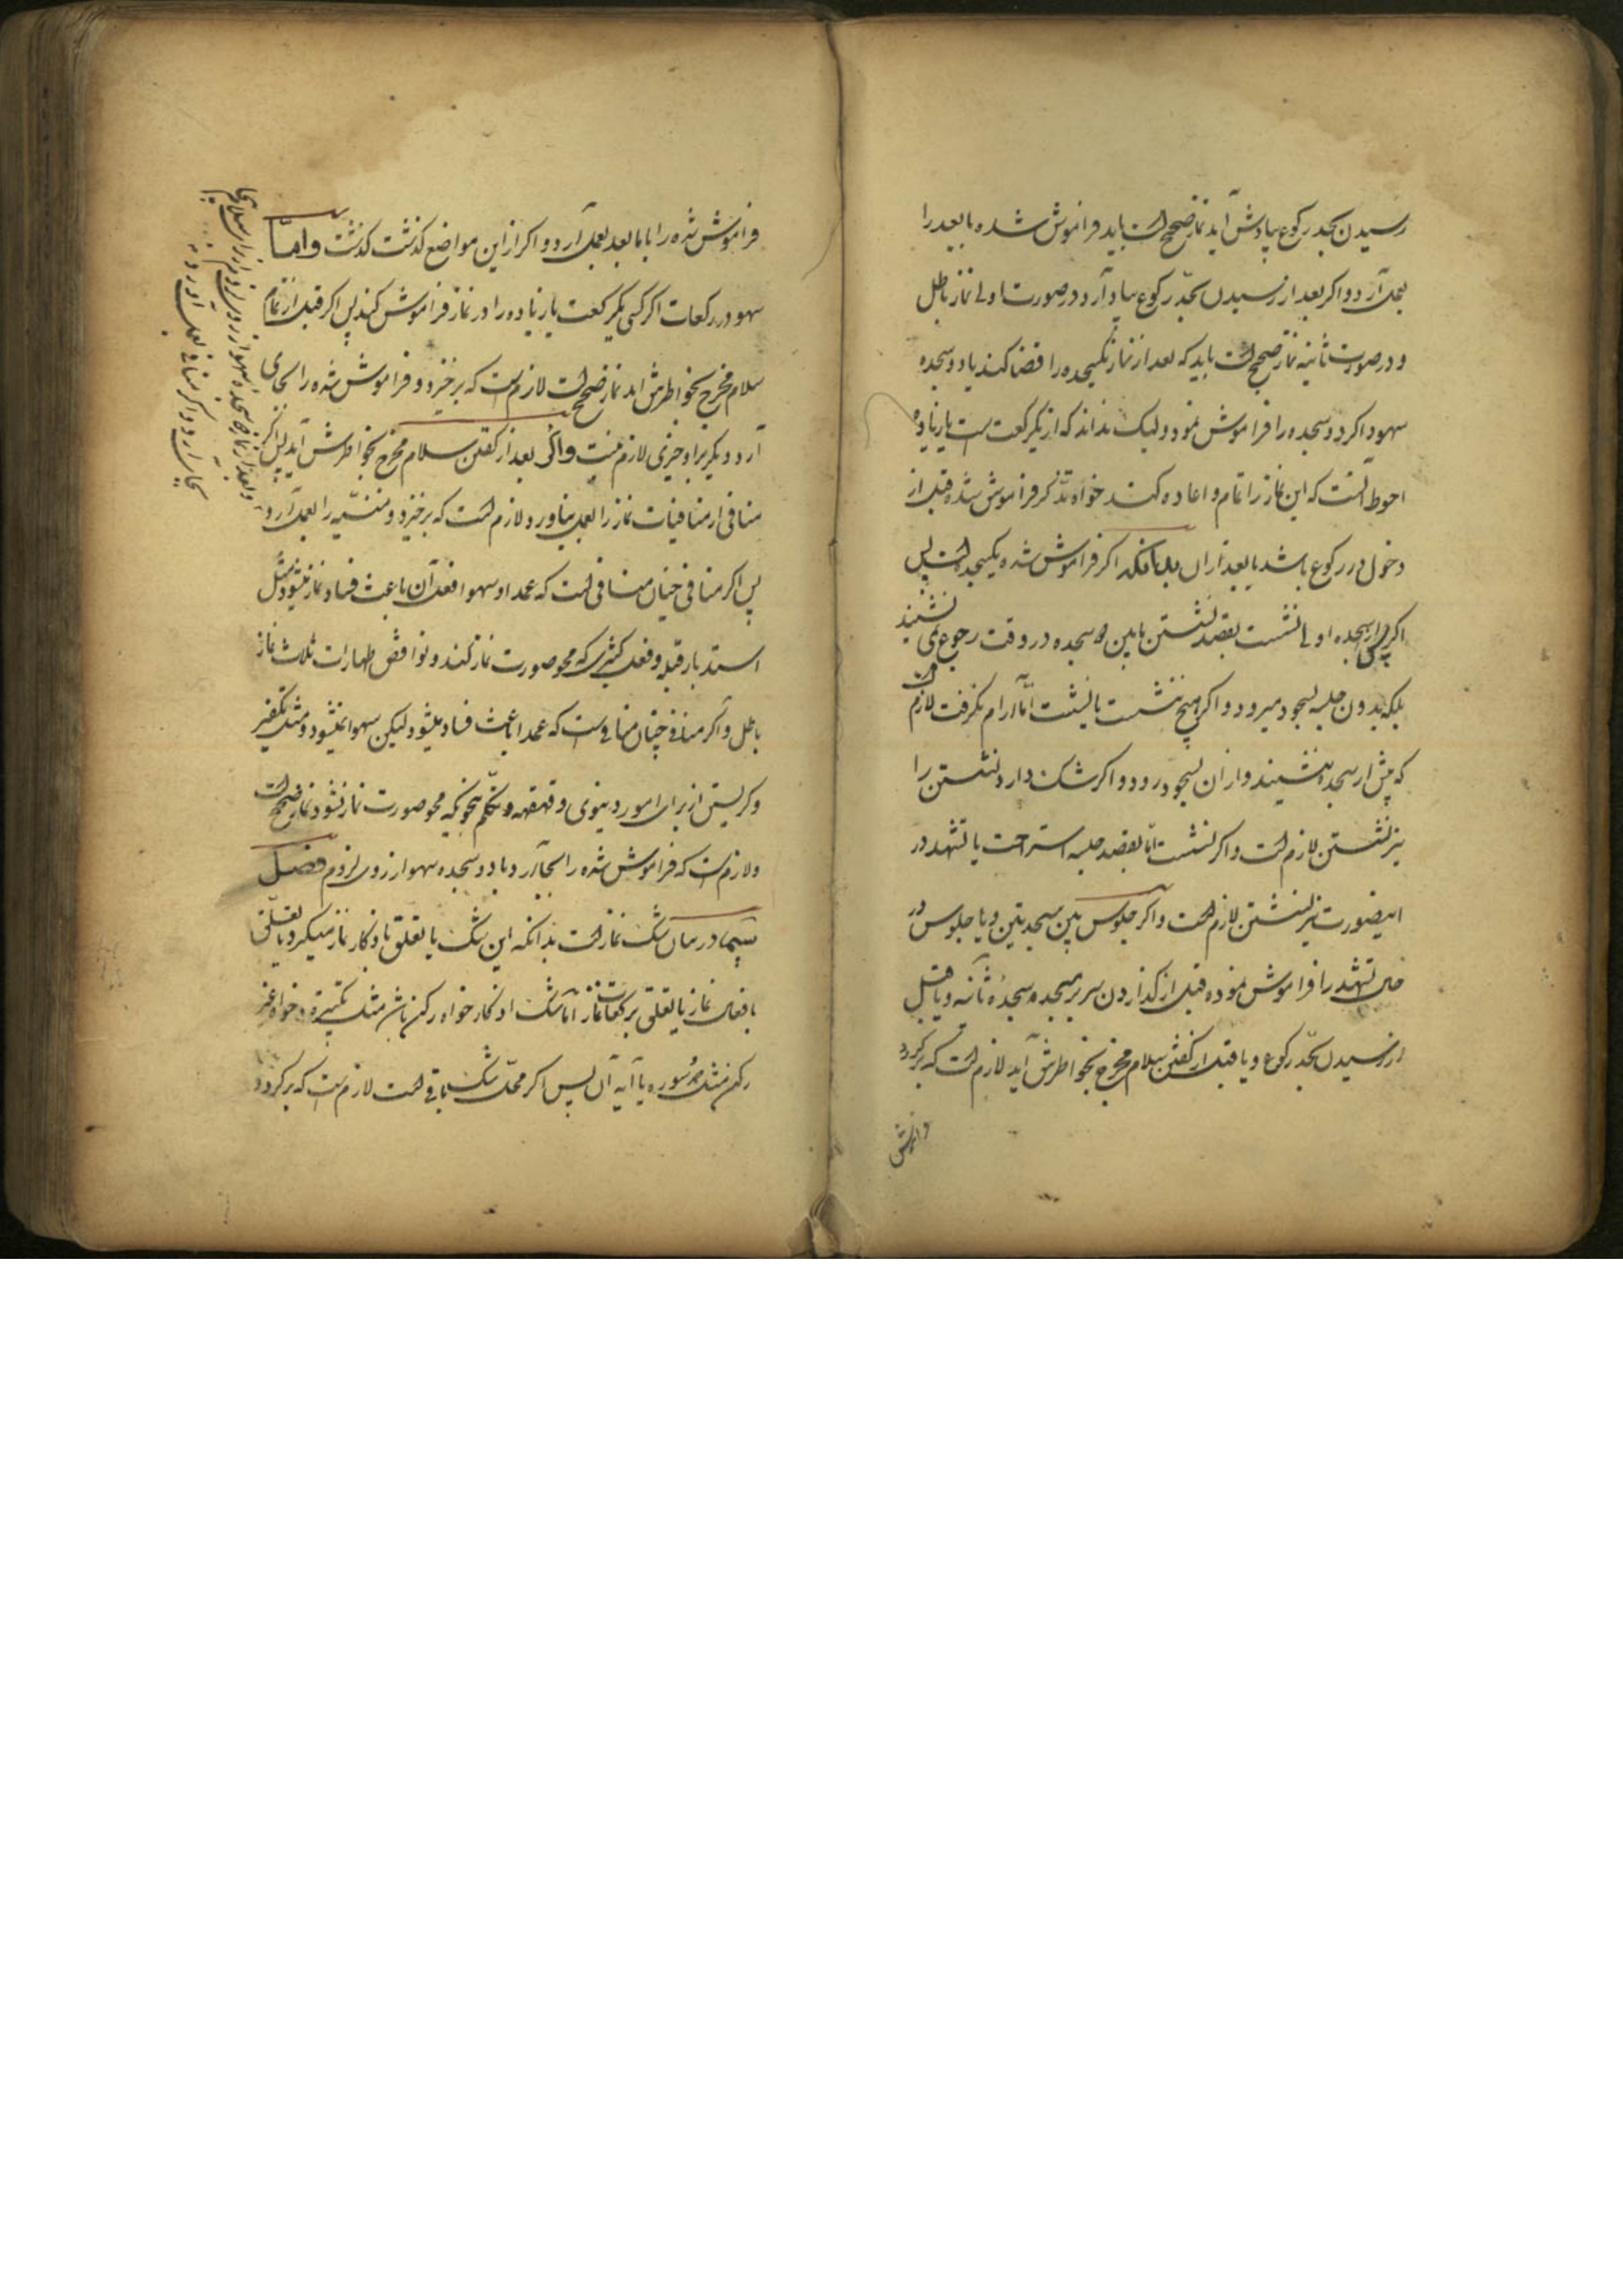 رسیدن بحد رکوع بیادش آید نماز صحیح است باید فراموش شده با بعد را
بعمل آرد و اگر بعد از رسیدن بحدّ رکوع بیاد آرد در صورت اولی نماز باطل
و در صورت ثانیه نماز صحیح است باید که بعد از نماز یکسجده را قضا کند با دو سجده
سهو و اگر دو سجده را فراموش نمود ولیک نداند که از یکرکعت است یا زیاده
احوط آنست که این نماز را تمام و اعاده کند خواه تذکر فراموش شده قبل از
دخول در رکوع باشد یا بعد از آن بدانکه اگر فراموش شده یکسجده است پس
اگر پس از سجده اولی نشست بقصد نشستن مابین دو سجده در وقت رجوع نمی نشیند
بلکه بدون جلسه بسجود میرود و اگر هیچ ننشست یا نشست امّا آرام نگرفت لازم است
که پیش از سجده بنشیند و از آن بسجود رود و اگر شک دارد نشستن را
نیز نشستن لازم است و اگر نشست امّا بقصد جلسه استراحت یا تشهد در
اینصورت نیز نشستن لازم است و اگر جلوس بین سجدتین و یا جلوس در
تشهد را فراموش نموده قبل از گذاردن سر بر سجده سجدهٔ ثانیه و یا قبل
از رسیدن بحدّ رکوع و یا قبل از گفتن سلام مخرج بخواطرش آید لازم است که برگردد
فراموش شده را با ما بعد بعمل آرد و اگر از این مواضع گذشت گذشت وامّا
سهو در رکعات اگر کسی یکرکعت یا زیاده را در نماز فراموش کند پس اگر قبل از تمام
سلام مخرج بخواطرش آید نماز صحیح است لازم است که برخیزد و فراموش شده را بجای
آرد دیگر بر او چیزی لازم نیست واگر بعد از گفتن سلام مخرج بخواطرش آید پس اگر
منافی از منافیات نماز را بعمل نیاورد لازم است که برخیزد و منسیه را بعمل آرد و
پس اگر منافی چنان منافی است که عمدا و سهوا فعل آن باعث فساد نماز میشود مثل
استدبار قبله و فعل کثیری که محو صورت نماز کند و نواقض طهارات ثلاث نماز
باطل و اگر منافی چنان منافی است که عمدا باعث فساد میشود لیکن سهوا نمیشود مثل تکفیر
و گریستن از برای امور دینوی و قهقهه و تکلّم بنحویکه محو صورت نماز نشود نماز صحیح است
و لازم است که فراموش شده را بجا آرد با دو سجده سهو از روی لزوم فصل
سیم در بیان شک نماز است بدانکه این شک یا تعلق باذکار نماز میگیرد یا تعلّق
بافعال نماز یا تعلق برکعات نماز امّا شک اذکار خواه رکن باشد مثل تکبیره و خواه غیر
رکن مثل حمد و سوره یا آیه آن پس اگر محلّ شک باقی است لازم است که برگردد
و بعد از نماز دو سجده سهو از روی لزوم
بجا آرد و اگر منافی بعمل آورد